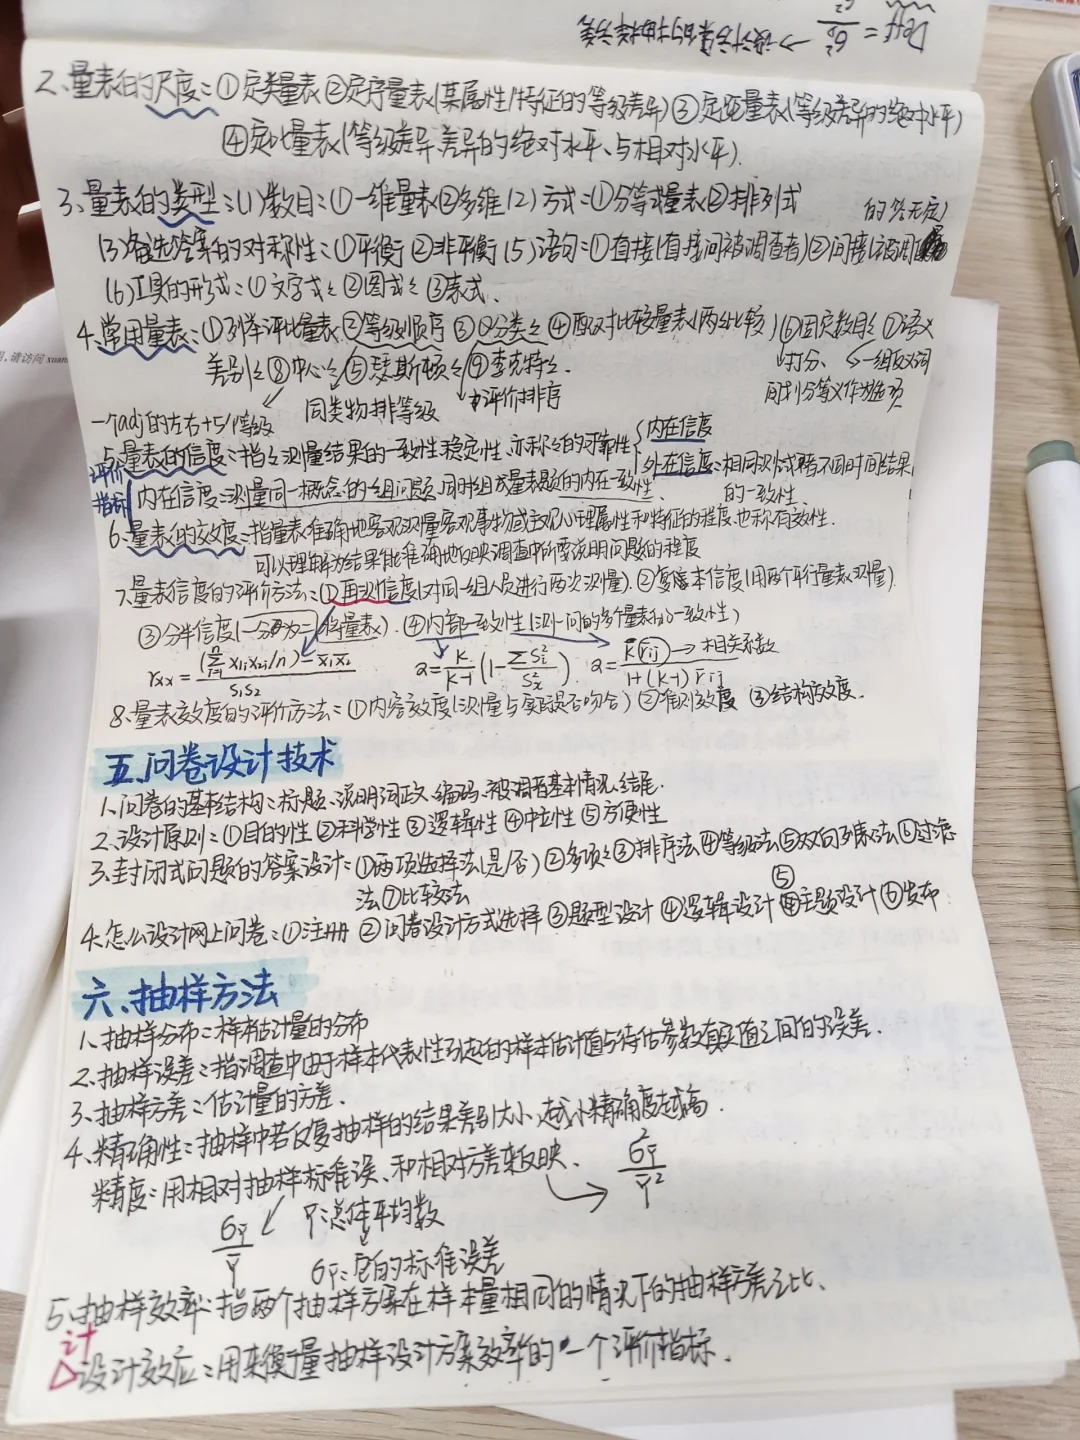 Deff = σ²p̂ / σ² → 设计方案的抽样方差
2、量表的尺度：①定类量表 ②定序量表(某属性/特征的等级差异) ③定距量表(等级差异的绝对水平)
④定比量表(等级差异、差异的绝对水平、与相对水平).
3、量表的类型：(1)数目：①一维量表②多维 (2)方式：①分等式量表②排列式
的答无定)
(3)备选答案的对称性：①平衡 ②非平衡 (5)语句：①直接(直接问被调查者)②间接
(6)工具的形式：①文字式〃 ②图式〃 ③表式.
4、常用量表：①列举评比量表 ②等级顺序 ③Q分类〃 ④配对比较量表(两分比较) ⑥固定数目〃 ⑦语义
差别〃 ⑧中心〃 ⑤瑟斯顿〃 ⑨李克特〃.
打分、 一组反义词
一个adj的左右+5个等级 同类物排等级 评价排序 间划分等
5、量表的信度：指〃测量结果的一致性、稳定性,亦称〃的可靠性 内在信度
评价指标
外在信度：相同测试者不同时间结果的一致性
内在信度：测量同一概念的一组问题,同时组成量表题的内在一致性.
6、量表的效度：指量表准确地客观测量客观事物或主观心理属性和特征的程度,也称有效性.
可以理解为结果能准确地反映调查中所要说明问题的程度
7、量表信度的评价方法：①再测信度(对同一组人员进行两次测量). ②复本信度(用两个平行量表测量).
③分半信度(一分为二将量表). ④内部一致性(测一问的多个量表的一致性)
rxx = ((Σ x₁ᵢx₂ᵢ/n) - x̄₁x̄₂) / S₁S₂ α = K/(K-1) (1 - ΣSᵢ²/Sₓ²). α = K r̄ij / (1+(K-1) r̄ij) → 相关系数
8、量表效度的评价方法：①内容效度(测量与实际是否吻合) ②准则效度 ③结构效度.
五、问卷设计技术
1、问卷的基本结构：标题、说明词、正文、编码、被调者基本情况、结尾.
2、设计原则：①目的性 ②科学性 ③逻辑性 ④中立性 ⑤方便性
3、封闭式问题的答案设计：①两项选择法(是否) ②多项〃 ③排序法 ④等级法 ⑤双向列表法 ⑥过滤
法 ⑦比较法
4、怎么设计网上问卷：①注册 ②问卷设计方式选择 ③题型设计 ④逻辑设计 ⑤主题设计 ⑥发布
六、抽样方法
1、抽样分布：样本估计量的分布
2、抽样误差：指调查中由于样本代表性引起的样本估计值与待估参数真实值之间的误差.
3、抽样方差：估计量的方差.
4、精确性：抽样中若反复抽样的结果差别大小、越小精确度越高.
精度：用相对抽样标准误、和相对方差来反映. σ²ȳ / Ȳ²
σȳ / Ȳ Ȳ：总体平均数
σȳ：它的标准误差
5、抽样效率：指两个抽样方案在样本量相同的情况下的抽样方差之比、
计
△设计效应：用来衡量抽样设计方案效率的一个评价指标.